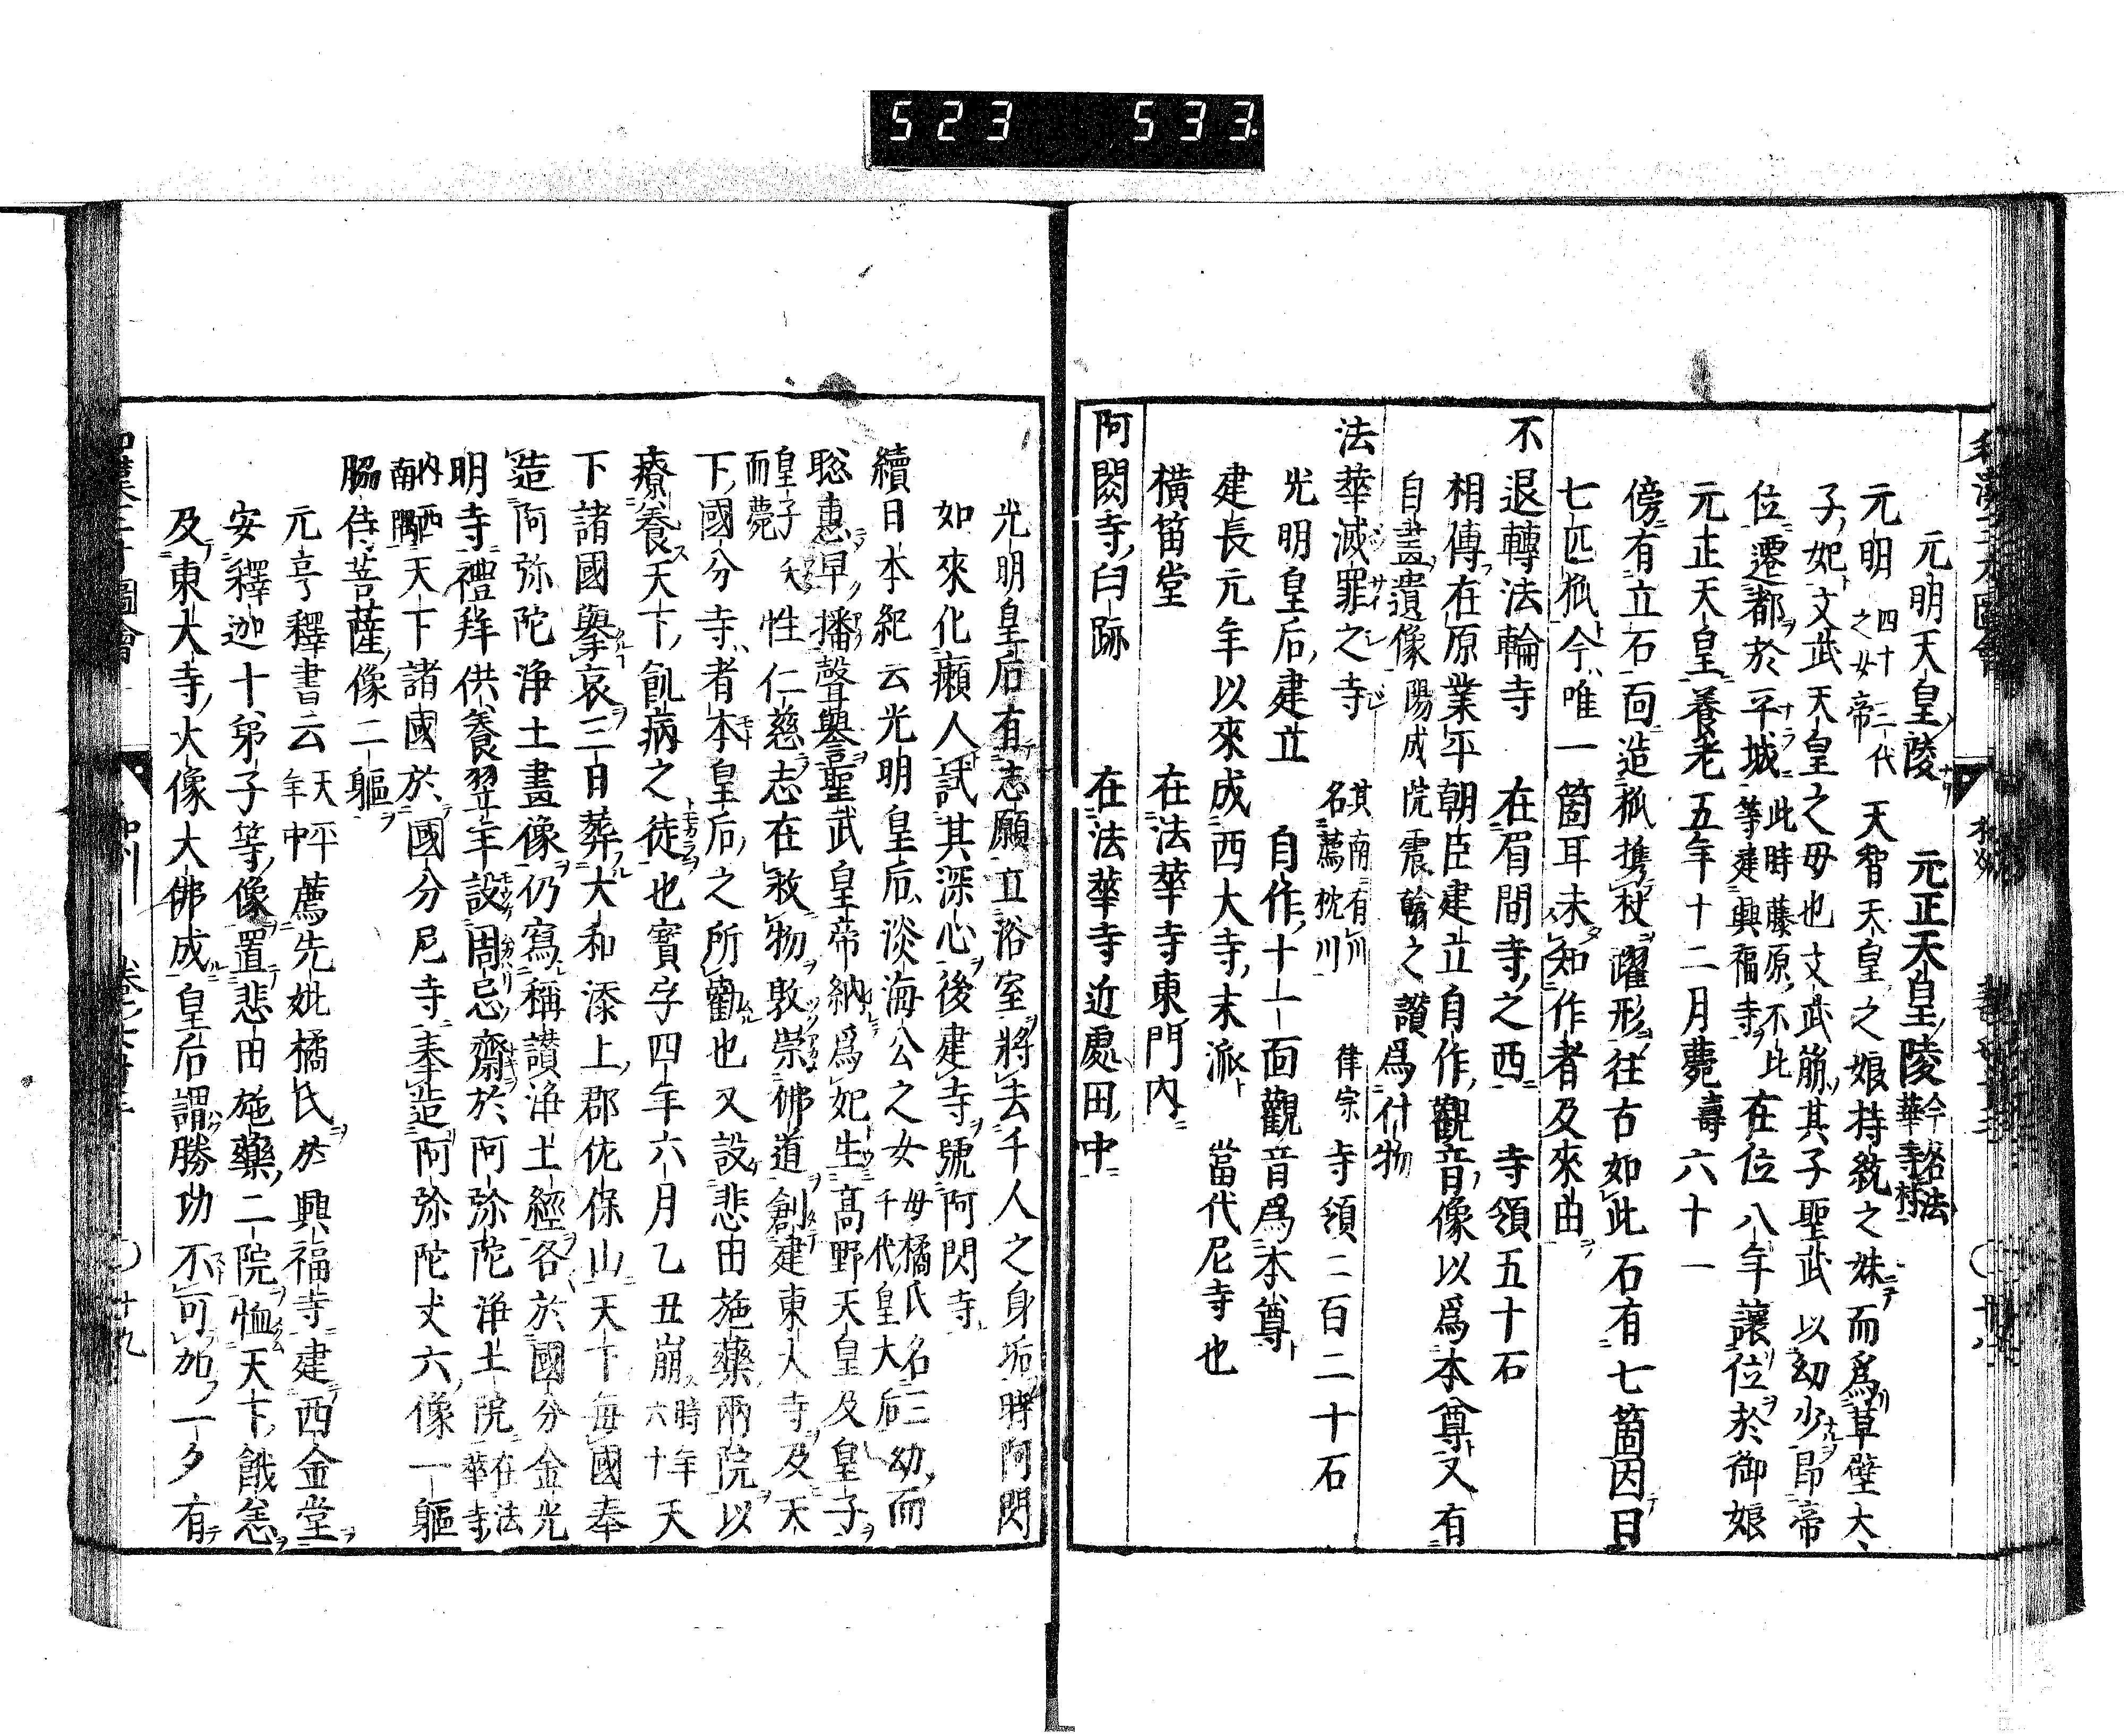 523 533
元明天皇陵 元正天皇陵 今名法華寺村
元明 四十三代之女帝 天智天皇之娘持統之妹而爲草壁太
子妃文武天皇之母也文武崩其子聖武以幼少昂帝
位遷都於平城 此時藤原不比等建興福寺 在位八年讓位於御娘
元正天皇養老五年十二月薨壽六十一
傍有立石面造狐携杖躍形往古如此石有七箇因曰
七匹狐今唯一箇耳未知作者及來由
不退轉法輪寺 在眉間寺之西 寺領五十石
相傳在原業平朝臣建立自作觀音像以爲本尊又有
自畫遺像陽成院震翰之讃爲什物
法華滅罪之寺 其南有川名薦枕川 律宗 寺領二百二十石
光明皇后建立 自作十一面觀音爲本尊
建長元年以來成西大寺末派 當代尼寺也
横笛堂 在法華寺東門内
阿閦寺臼跡 在法華寺近處田中
光明皇后有志願立浴室將去千人之身垢時阿閦
如來化癩人試其深心後建寺號阿閦寺
續日本紀云光明皇后淡海公之女 母橘氏名三千代皇大后 幼而
聡惠早播聲譽聖武皇帝納爲妃生高野天皇及皇子
皇子夭而薨 性仁慈志在救物敦崇佛道創建東大寺及天
下國分寺者本皇后之所勸也又設悲田施藥兩院以
療養天下飢病之徒也寶字四年六月乙丑崩 時年六十 天
下諸國擧哀三日葬大和添上郡佐保山天下毎國奉
造阿弥陀浄土畫像仍寫稱讃浄土經各於國分金光
明寺禮拜供養翌年設周忌齋於阿弥陀浄土院 在法華寺
内西南隅 天下諸國於國分尼寺奉造阿弥陀丈六像一軀
脇侍菩薩像二軀
元亨釋書云 天平年中 薦先妣橘氏於興福寺建西金堂
安釋迦十弟子等像置悲田施藥二院恤天下餓恙
及東大寺大像大佛成皇后謂勝功不可加一夕有